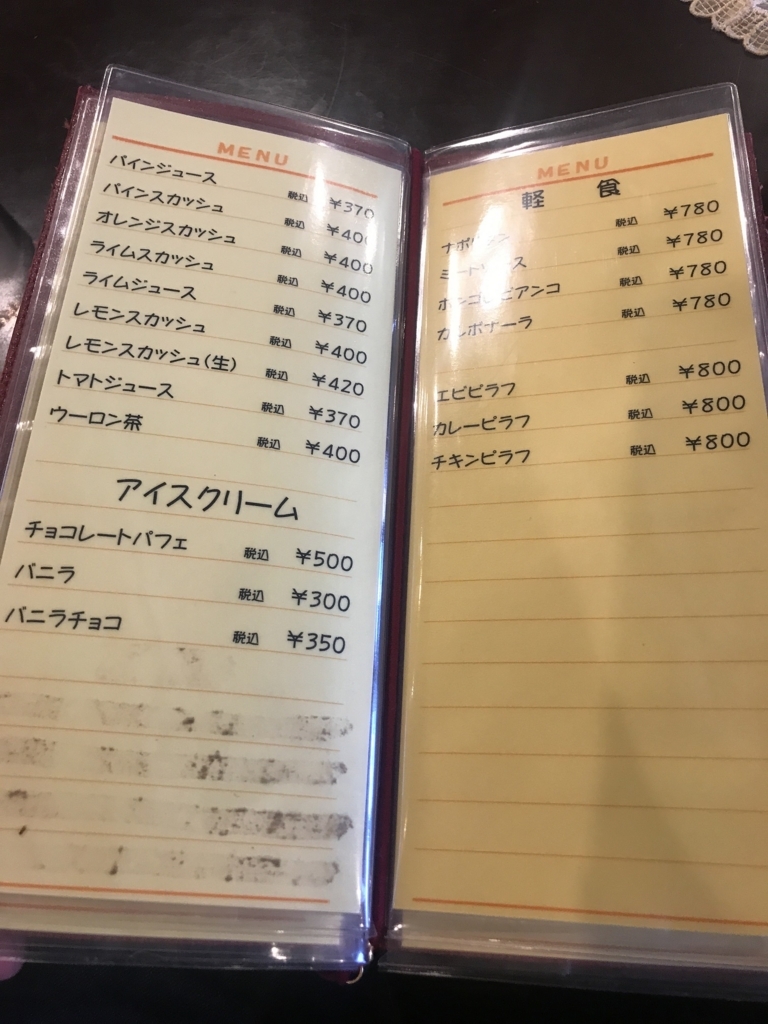 MENU
パインジュース 税込 ¥370
パインスカッシュ 税込 ¥400
オレンジスカッシュ 税込 ¥400
ライムスカッシュ 税込 ¥400
ライムジュース 税込 ¥370
レモンスカッシュ 税込 ¥400
レモンスカッシュ(生) 税込 ¥420
トマトジュース 税込 ¥370
ウーロン茶 税込 ¥400
アイスクリーム
チョコレートパフェ 税込 ¥500
バニラ 税込 ¥300
バニラチョコ 税込 ¥350
MENU
軽 食
ナポリタン 税込 ¥780
ミートソース 税込 ¥780
ボンゴレビアンコ 税込 ¥780
カルボナーラ 税込 ¥780
エビピラフ 税込 ¥800
カレーピラフ 税込 ¥800
チキンピラフ 税込 ¥800